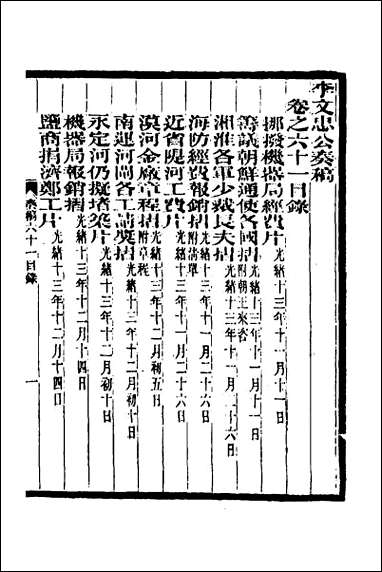 李文忠公奏稿
卷之六十一目錄
挪撥機器局經費片 光緒十三年十一月十一日
籌議朝鮮通使各國摺 附朝王來咨 光緒十三年十一月十一日
湘淮各軍少裁長夫摺 光緒十三年十一月二十六日
海防經費報銷摺 附清單 光緒十三年十一月二十六日
近省隄河工費片 光緒十三年十一月二十六日
漠河金廠章程摺 附章程 光緒十三年十二月初五日
南運河閘各工請獎摺 光緒十三年十二月初十日
永定河仍擬堵築片 光緒十三年十二月初十日
機器局報銷摺 光緒十三年十二月十四日
鹽商捐濟鄭工片 光緒十三年十二月十四日
奏稿六十一目錄
一